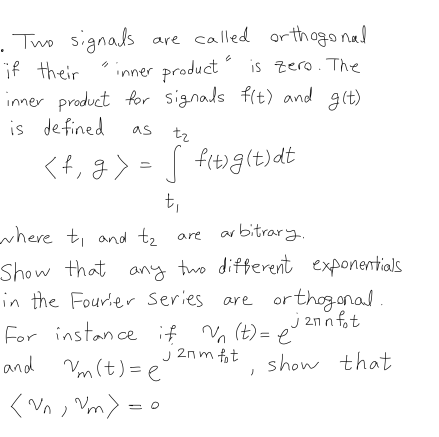 . Two signals are called orthogonal
if their "inner product" is zero. The
inner product for signals f(t) and g(t)
is defined as
⟨f, g⟩ = ∫_{t₁}^{t₂} f(t)g(t)dt
where t₁ and t₂ are arbitrary.
Show that any two different exponentials
in the Fourier Series are orthogonal.
For instance if vₙ(t) = e^{j2πnf₀t}
and vₘ(t) = e^{j2πmf₀t}, show that
⟨vₙ, vₘ⟩ = 0